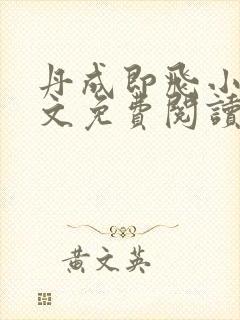 丹成即飛小
文免費閱讀
黃文英